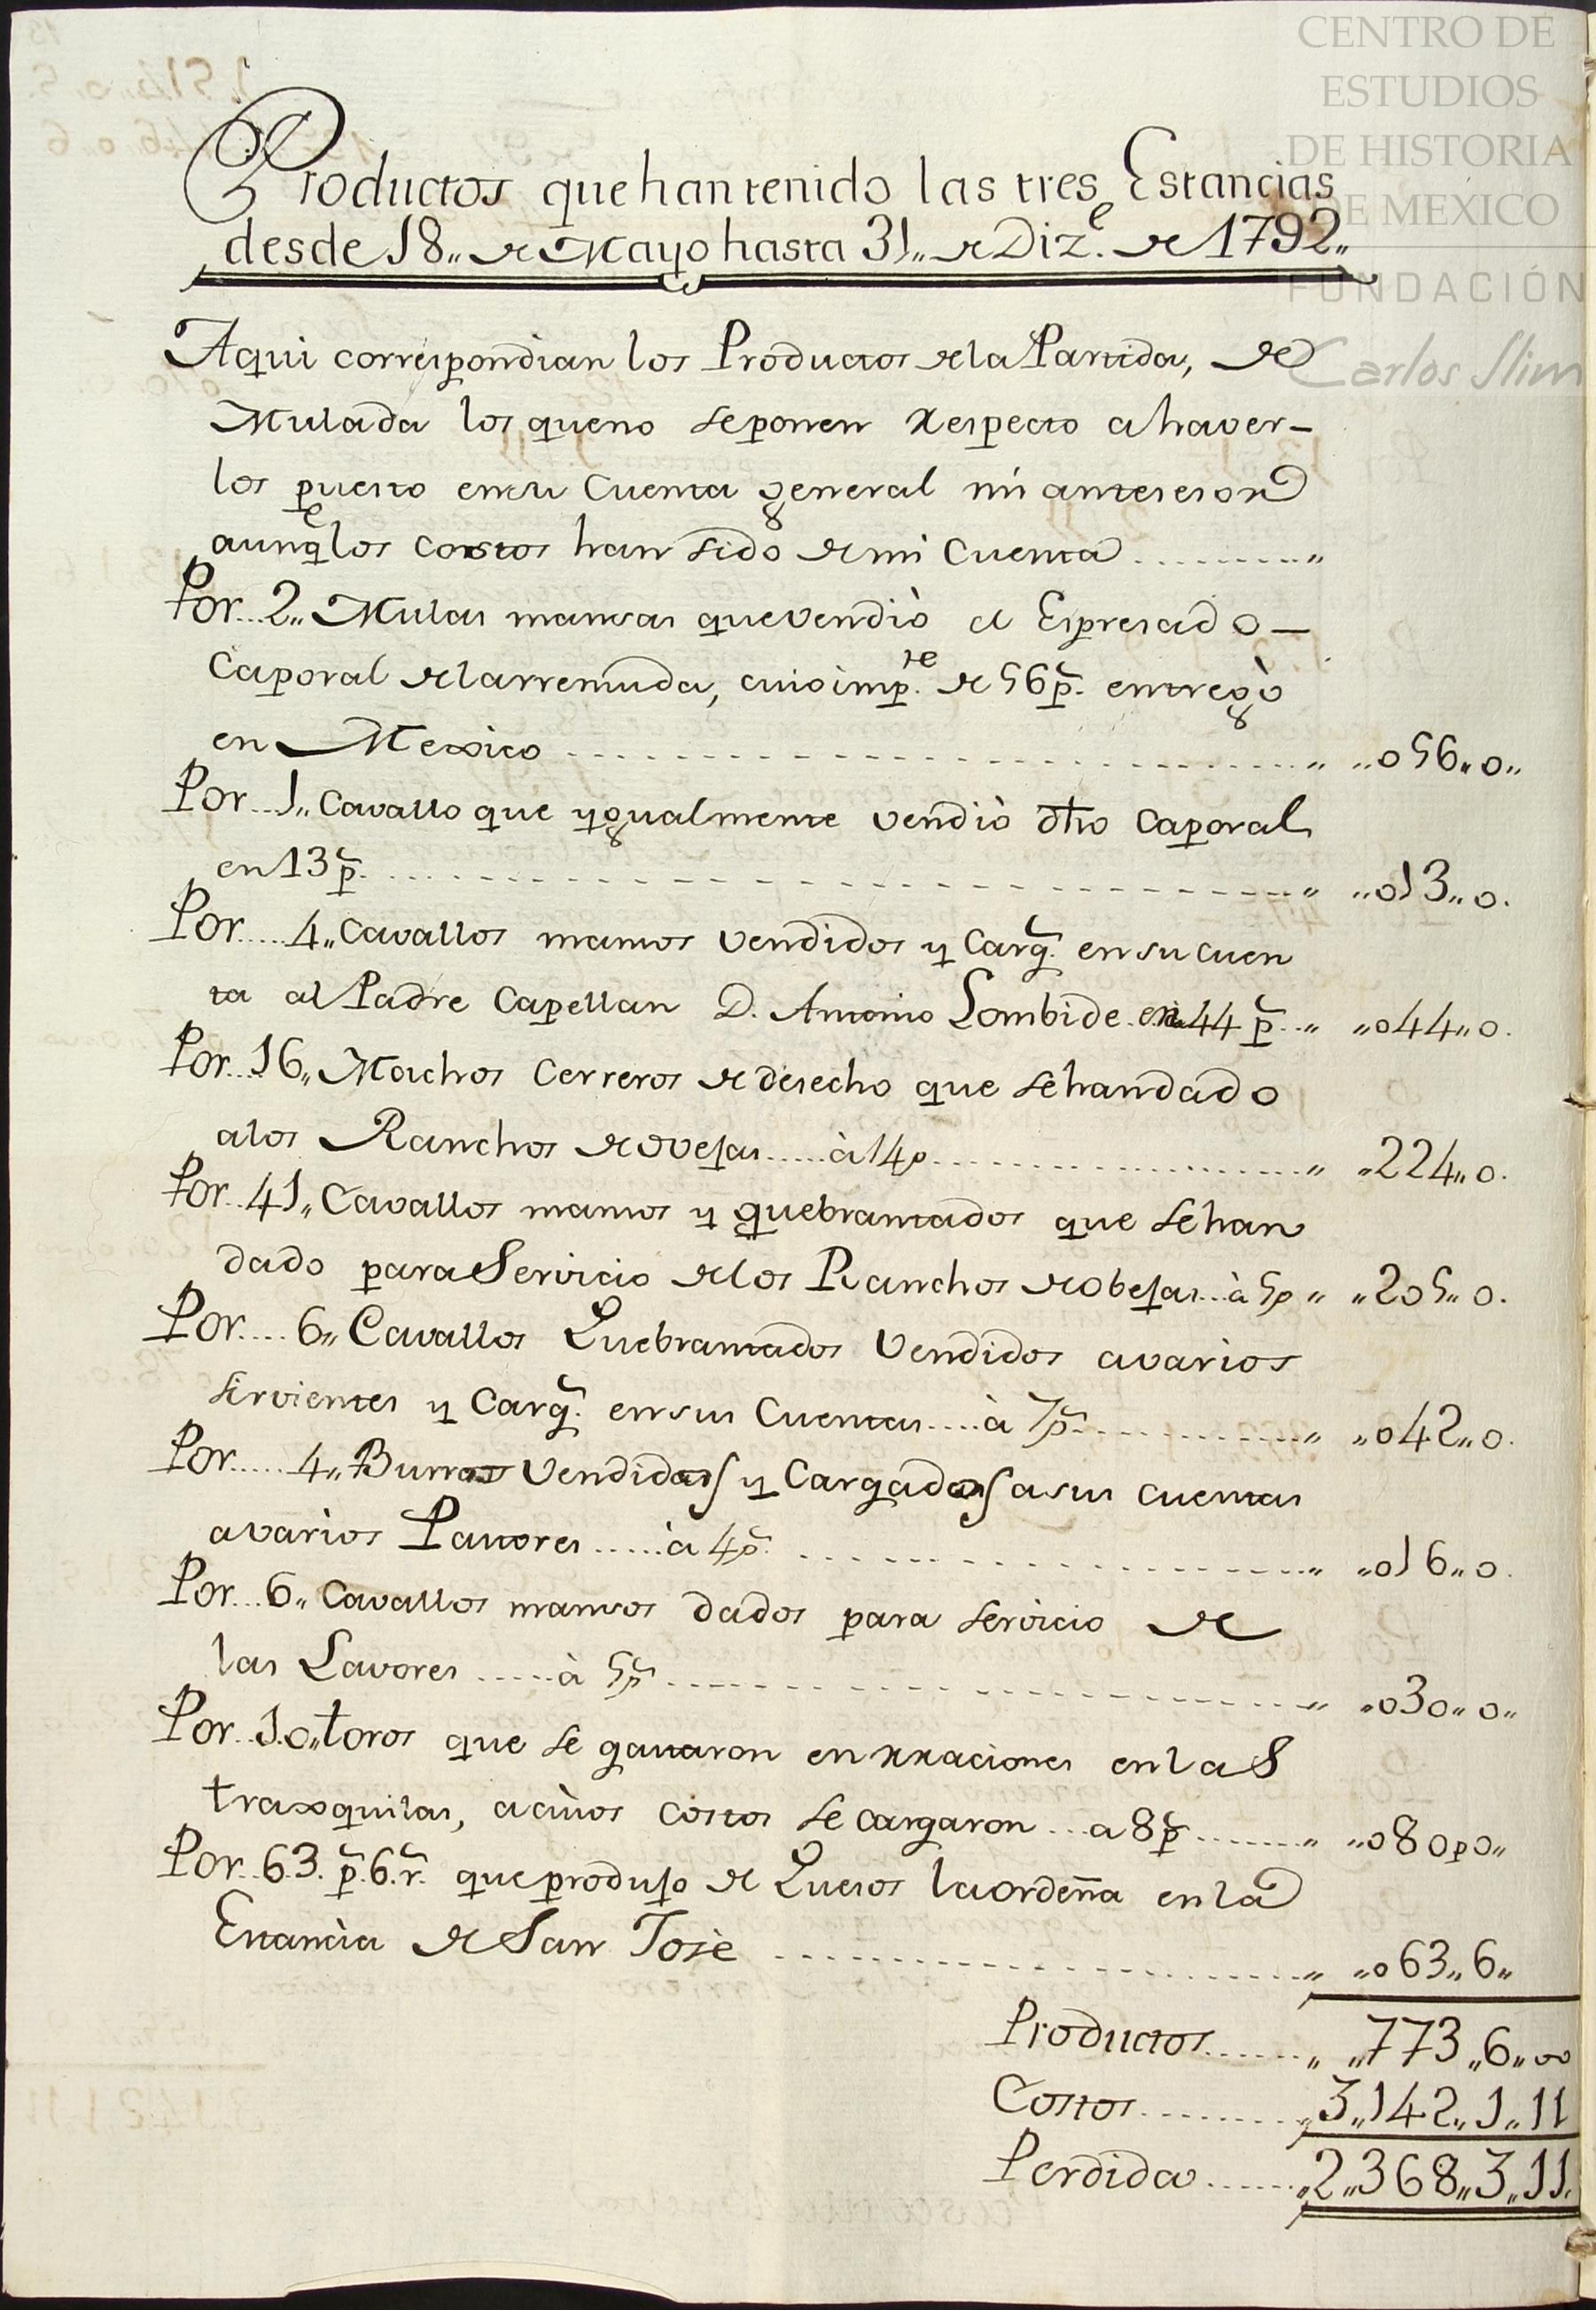 CENTRO DE
ESTUDIOS
DE HISTORIA
DE MEXICO
FUNDACIÓN
Carlos Slim
Productos que han tenido las tres Estancias
desde 18,, de Mayo hasta 31,, de Diz.e de 1792,,
Aqui correspondian los Productos de la Partida, de
Mulada los que no se ponen respecto a haver-
los puesto en su Cuenta general mi antesesor
aunq.e los costos han sido de mi Cuenta ..........,,
Por...2,, Mulas mansas que vendiò el Espresado-
Caporal de la rremuda, cuio imp.te de 56 p.s entregò
en Mexico ..................,, ,,056,,0,,
Por...1,, Cavallo que ygualmente vendiò dho Caporal
en 13 p.s ..................,, ,,013,,0.
Por....4,, Cavallos mansos vendidos y Carg.s en su cuen
ta al Padre Capellan D. Antonio Lombide en 44 p.s ..,, ,,044,,0.
Por..16,, Machos Cerreros de desecho que se han dado
a los Ranchos de ovejas.....à 14 p ..................,, ,,224,,0.
Por..41,, Cavallos mansos y quebrantados que se han
dado para Servicio de los Ranchos de obejas...à 5 p ,, ,,205,,0.
Por....6,, Cavallos Quebrantados Vendidos a varios
sirvientes y Carg.s en sus Cuentas....à 7 p.s ............,, ,,042,,0.
Por....4,, Burras Vendidas y Cargadas a sus cuentas
a varios Pastores.....à 4 p.s ..................,, ,,016,,0.
Por...6,, Cavallos mansos dados para servicio de
las Lavores.....à 5 p.s ..................,, ,,030,,0,,
Por..10,, toros que se gastaron en rraciones en las
trasquilas, a cuios costos se cargaron...a 8 p.s ........,, ,,080p0,,
Por..63.p.s 6.r.s que produjo de Quesos la ordeña en la
Estancia de San Josè ..................,, ,,063,,6,,
Productos........,, ,,773,,6,,00
Costos..........,,3,,142,,1,,11
Perdida.......,,2,,368,,3,,11.